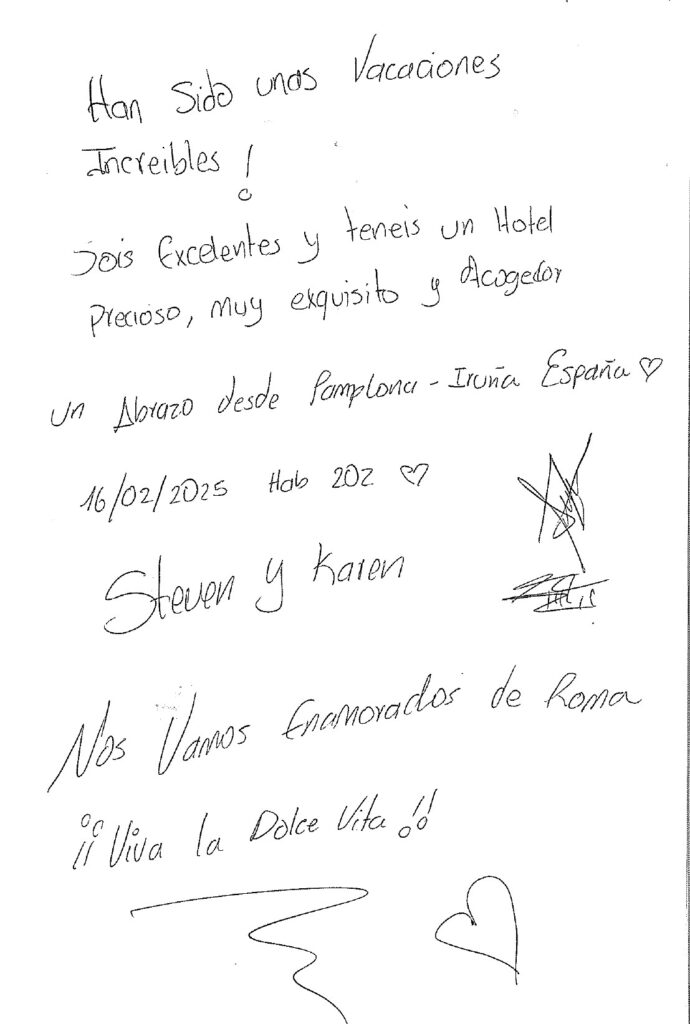 Han Sido unas Vacaciones
Increibles!
Sois Excelentes y teneis un Hotel
Precioso, muy exquisito y Acogedor
un Abrazo desde Pamplona - Iruña España ♡
16/02/2025 Hab 202 ♡
Steven y Karen
Nos Vamos Enamorados de Roma
¡¡Viva la Dolce Vita!!